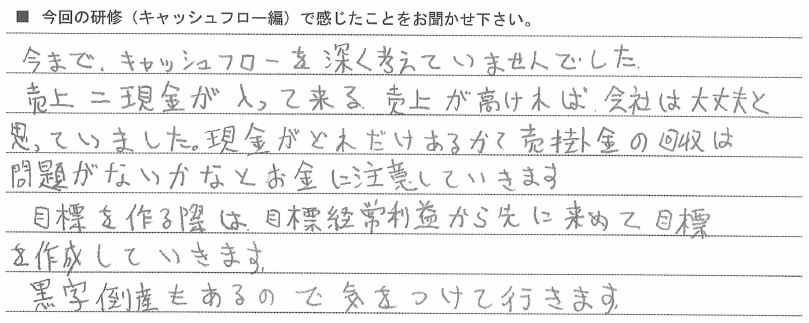 ■ 今回の研修（キャッシュフロー編）で感じたことをお聞かせ下さい。
今まで、キャッシュフローを深く考えていませんでした。
売上＝現金が入って来る 売上が高ければ、会社は大丈夫と
思っていました。現金がどれだけあるかで売掛金の回収は
問題がないかなとお金に注意していきます
目標を作る際は、目標経常利益から先に求めて目標
を作成していきます。
黒字倒産もあるので気をつけて行きます。